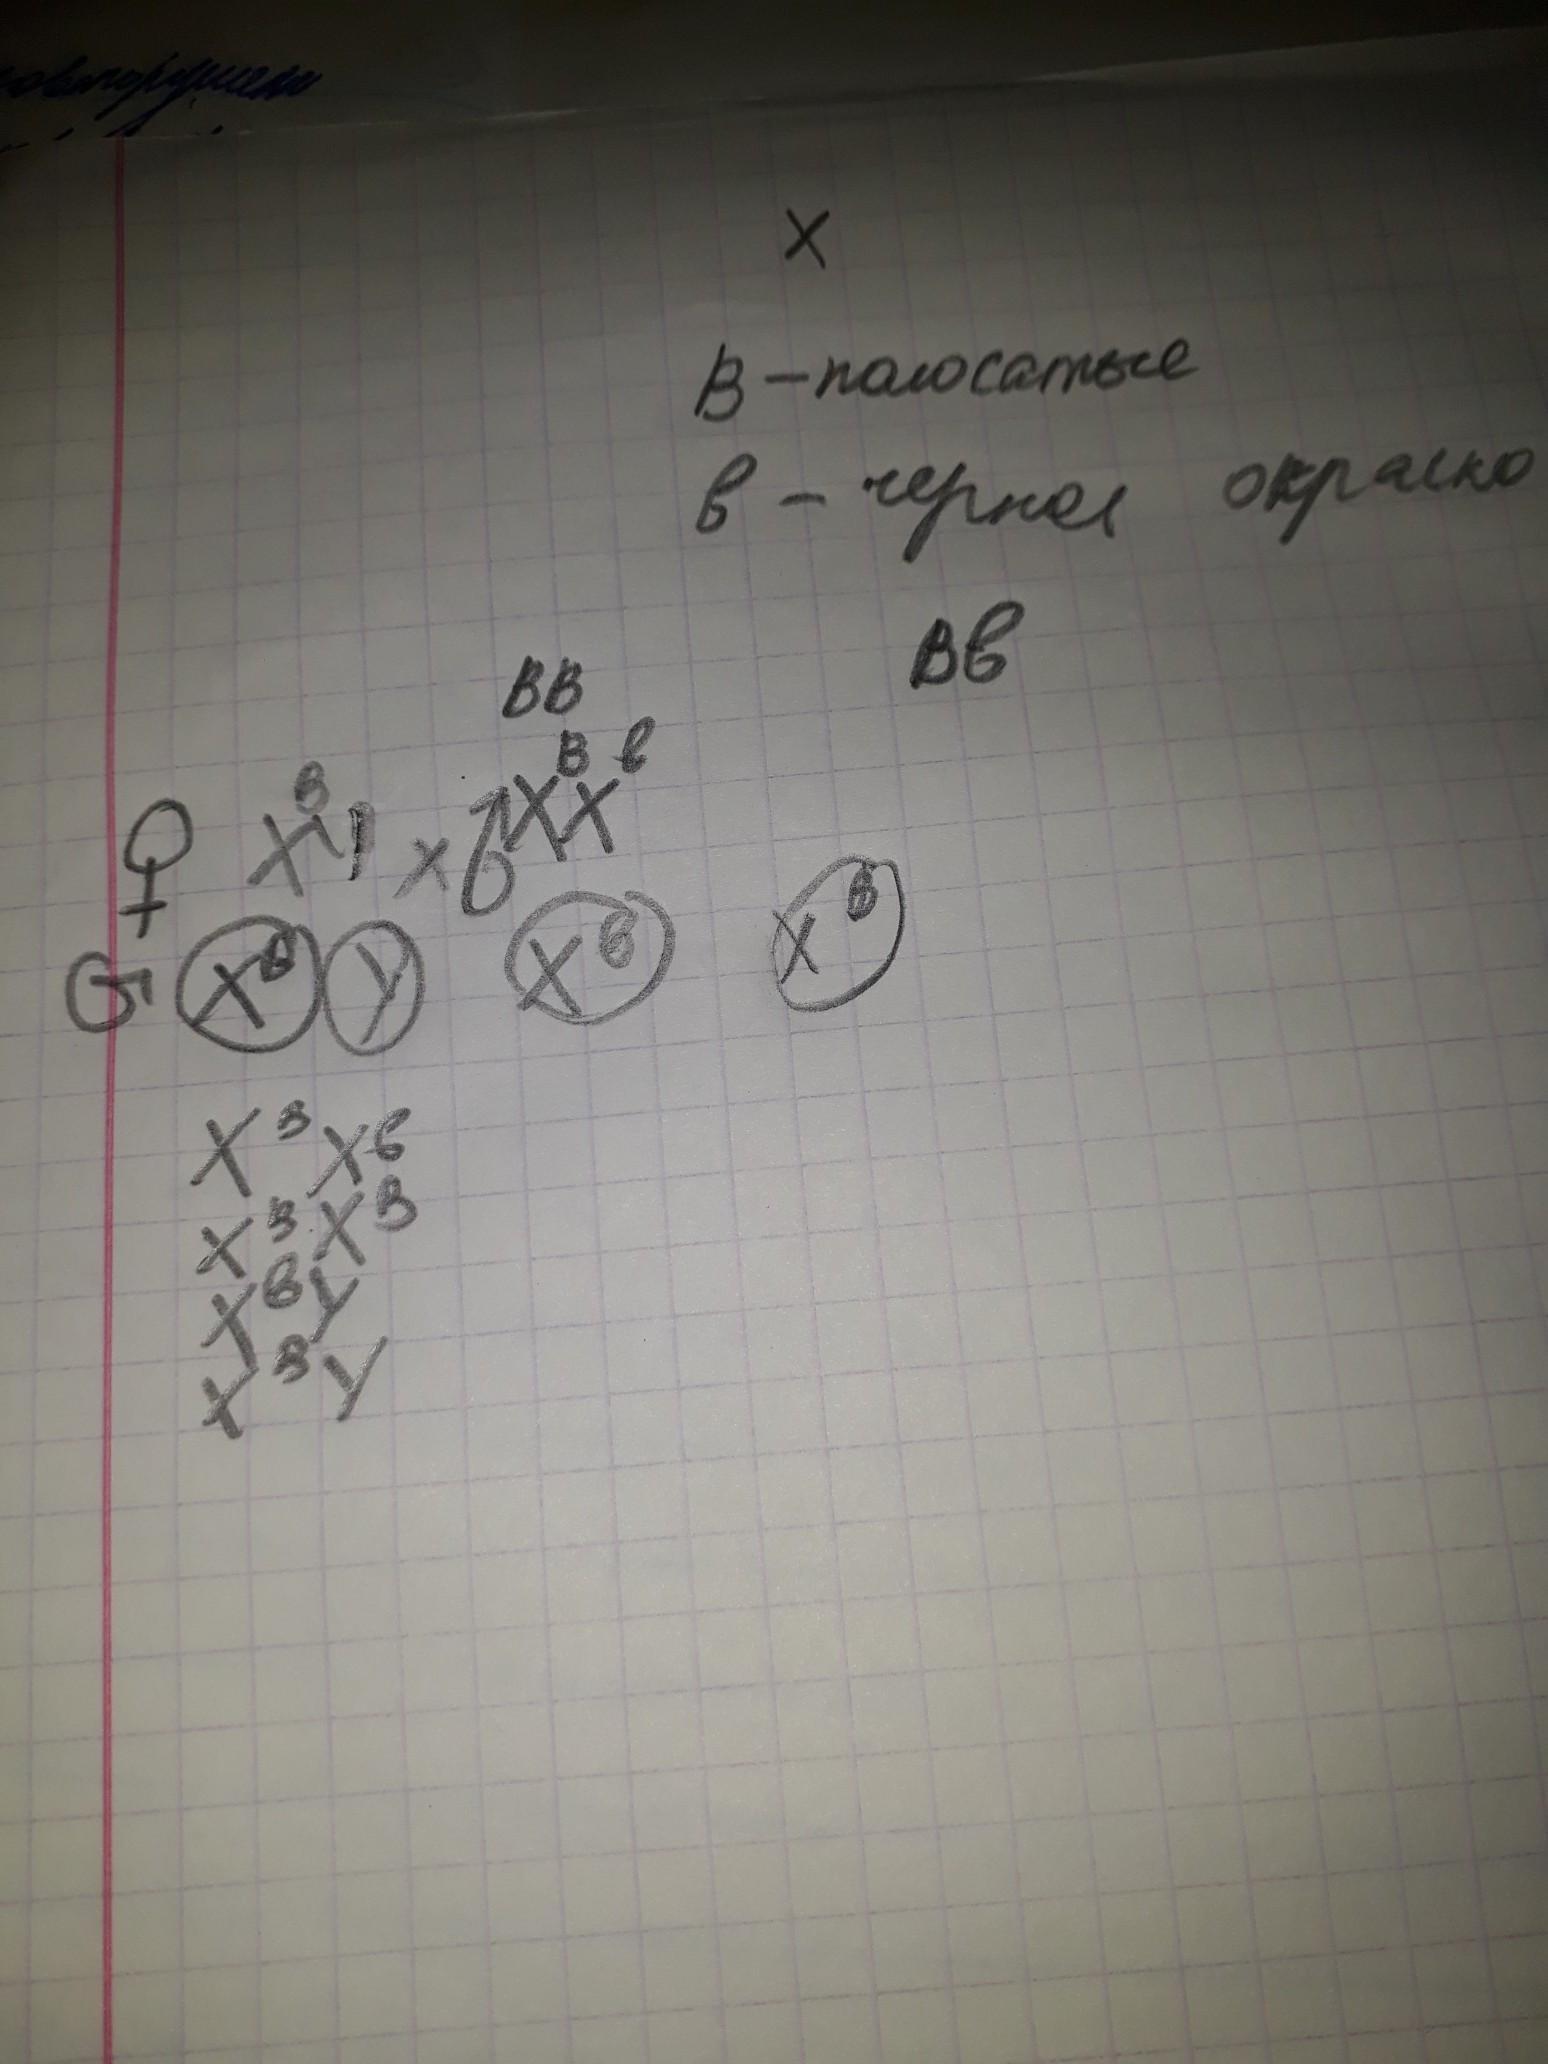 X
B - полосатые
в - черная окраска
Вв
BB
♀ XᴮY × ♂ XᴮXᵇ
G Xᴮ Y Xᵇ Xᴮ
XᴮXᵇ
XᴮXᴮ
XᵇY
XᴮY